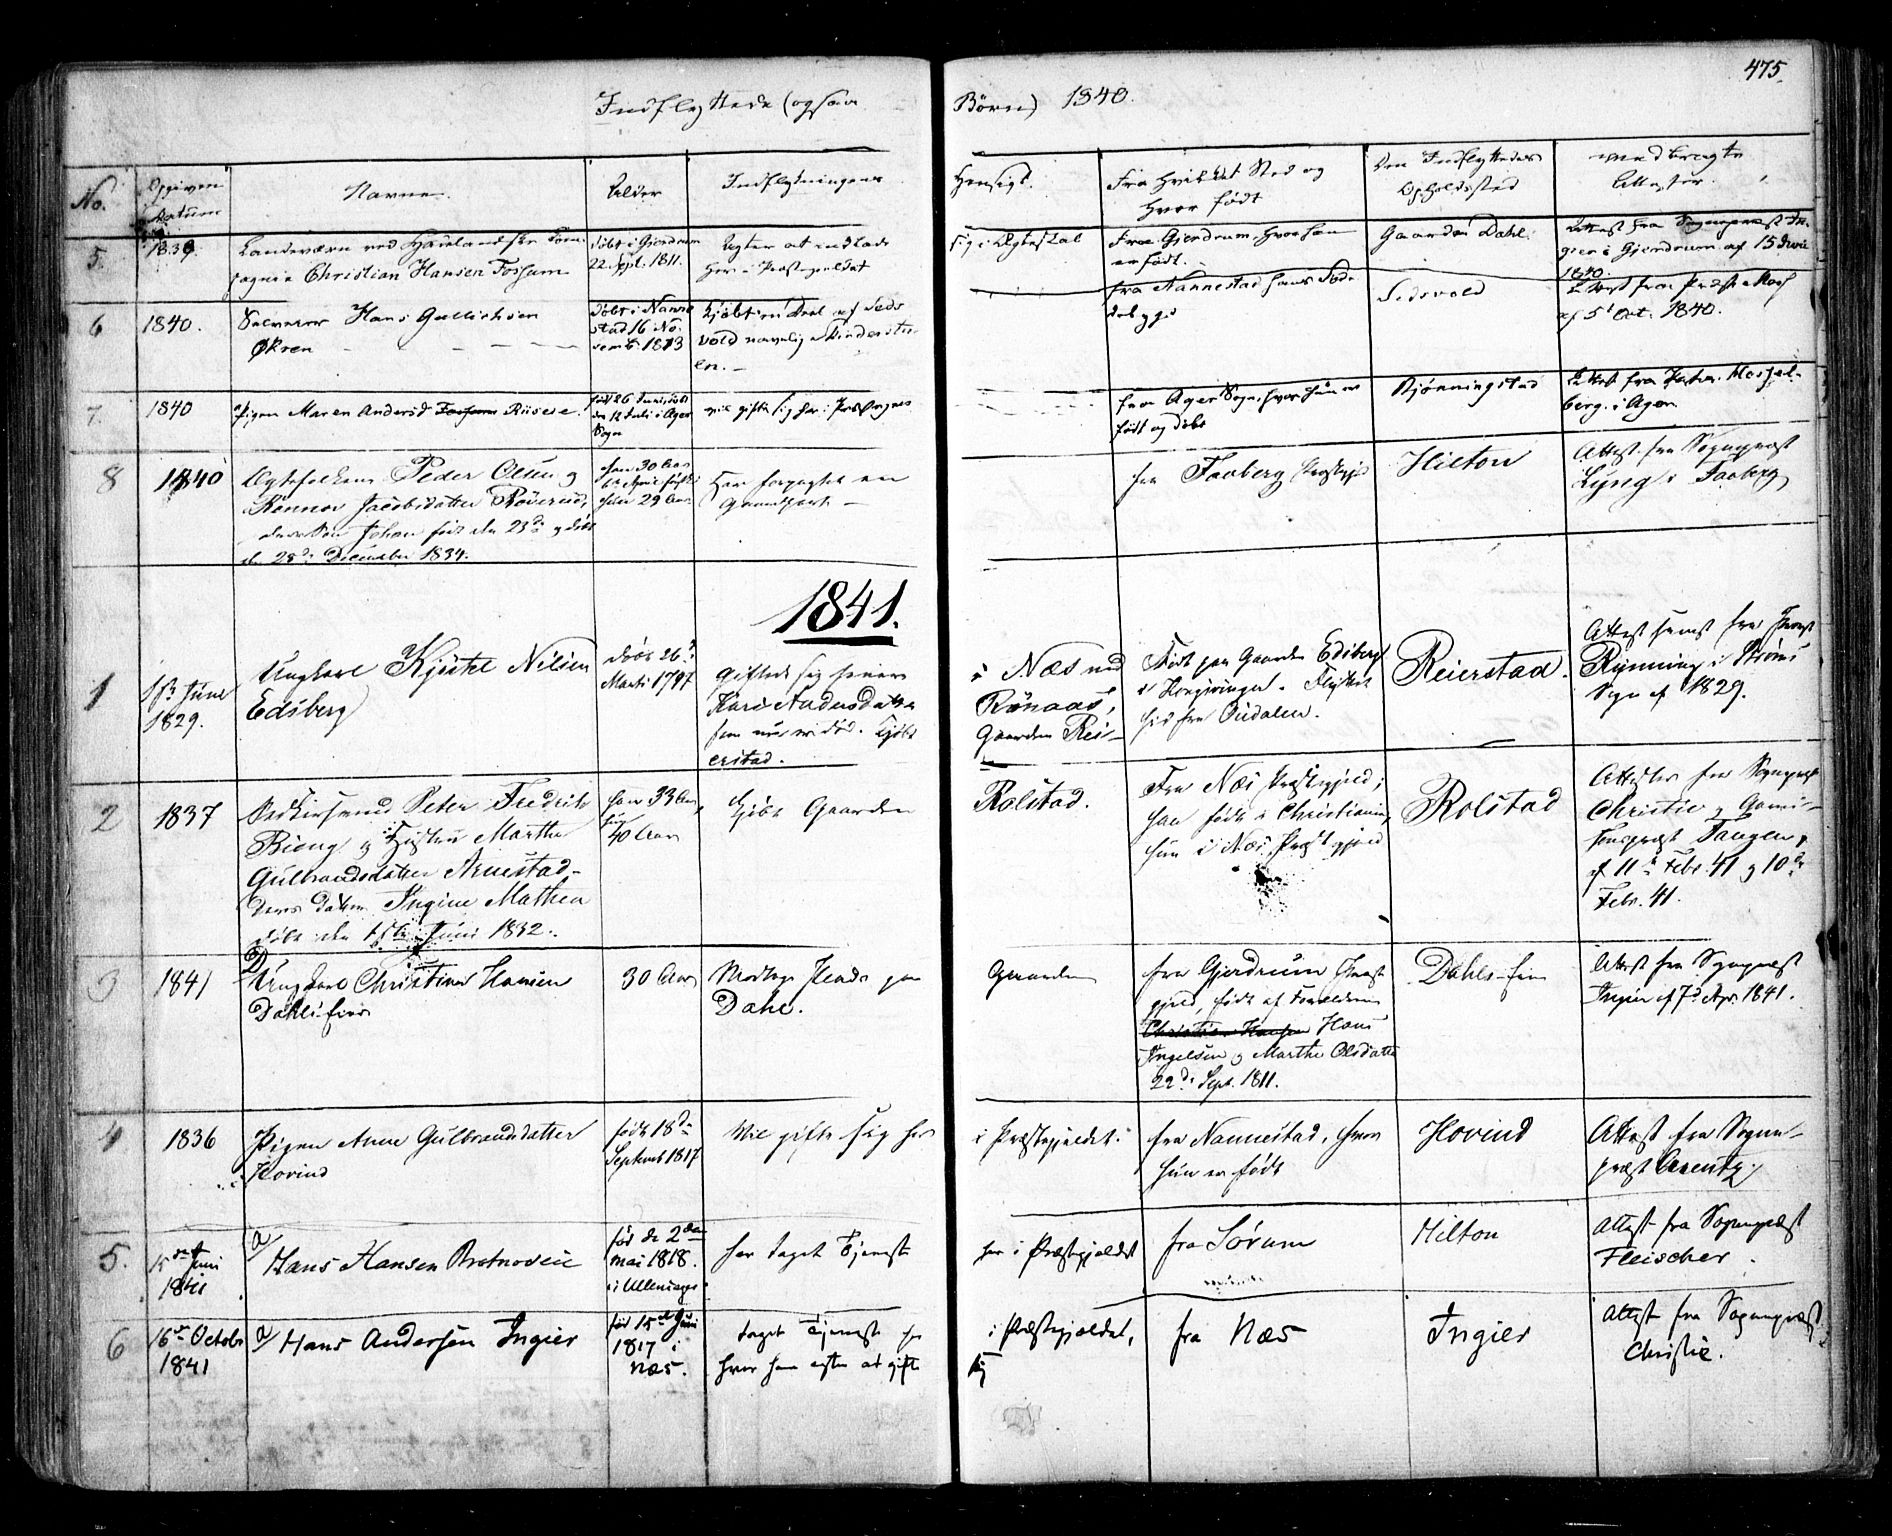 475.
Indflyttede (ogsaa Børn) 1840.
No. Opgiven Datum Navne. Alder Indflytningens Hensigt. Fra hvilket Sted og hvor født Den Indflyttedes Opholdssted medbragte Attester.
5. 1839 Landeværn ved Hadelandske Com-
pagnie Christian Hansen Fossum
døbt i Gjerdrum
22 Sept. 1811.
Agter at indlade
sig i Ægtestal
her i Præstegjeldet
fra Gjerdrum, hvor han
er født.
Gaarden Dahl.
Attest fra Sognepræst In-
gier i Gjerdrum af 15
1840.
6 1840. Selveier Hans Gullichsen
Økren
døbt i Nanne
stad 16 No-
vemb. 1813
kjøbt en Deel af Jeds
vold navnlig
en.
fra Nannestad hans Føde
bygd
Jedsvold
Attest fra Præst
af 5t Oct. 1840.
7. 1840 Pigen Maren Andersd. Fossum Riiser.
født 26 Juni, døbt
den 12 Juli i Ager
Sogn
vil gifte sig her i Præstegjeld
fra Ager Sogn, hvor hun er
født og døbt
Rjønningstad
Attest fra Pastor
berg i Ager.
8 1840 Ægtefolkene Peder Olsen og
Rønnov Jacobsdatter
deres Søn Johan født den 23de og døbt
d. 28de December 1834.
han 30 Aar
hun 29 Aar
Har forpagtet en
Gaardpart
fra Faaberg Præstegjeld
Hilton
Attest fra Sognepræst
Lyng i Faaberg
1841.
1 1ste Juni
1829.
Ungkarl Kjøstel Nilsen
Edsberg
døbt 26de
Marti 1797
Giftede sig senere
i Næs med
Kari Andersdatter
Rønaas,
som nu er død. Kjøbt
Gaarden Rei-
erstad.
Født paa Gaarden Edsberg
i Kongsvinger. Flyttet
hid fra Oudalen.
Reierstad.
Attest senest fra Provst
Rynning i Strøms
Sogn af 1829.
2 1837 Peter Fredrik
Bieng og Hustru Marthe
Gulbrandsdatter Arnestad-
deres Datter Ingine Mathea
døbt den 1ste Juni 1832.
han 33 Aar,
hun
40 Aar
Kjøbt Gaarden
Rolstad.
Fra Næs Præstegjeld;
han født i Christiania,
hun i Næs Præstegjeld
Rolstad
Attester fra Sognepræst
Christie og Garni-
sonspræst Tangen,
af 11te Febr. 41 og 10de
Febr. 41.
3 1841 Ungkarl Christian Hansen
Dahls-eier
30 Aar
Modtage Plads paa
Gaarden
Dahl.
fra Gjerdrum Præst
gjeld, født af Forældrene
Christian Hansen Hans
Ingelsen og Marthe Olsdatter
22de Sept. 1811.
Dahls-eier
Attest fra Sognepræst
Ingier af 7de Apr. 1841.
4 1836 Pigen Anne Gulbrandsdatter
Hovind
født 18de
Septemb 1817
Vil gifte sig her
i Præstegjeldet.
fra Nannestad, hvor
hun er født
Hovind
Attest fra Sogne-
præst Arentz.
5. 15de Juni
1841
a/ Hans Hansen
fød de 2den
mai 1818.
i Ullensager
har taget Tjeneste
her i Præstegjeldet
fra Sørum
Hilton
Attest fra Sognepræst
Fleischer
6 16de Octobr
1841
a/ Hans Andersen Ingier
fød 15de Juni
1817 i
Næs.
taget Tjeneste her
i Præstegjeldet,
hvor han agter at gifte
sig
fra Næs
Ingier
Attest fra Sognepræst
Christie.